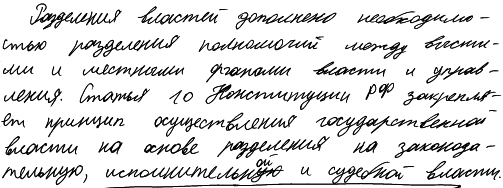 Разделения властей дополнено необходимо-
стью разделения полномочий между высши-
ми и местными органами власти и управ-
ления. Статья 10 Конституции РФ закрепля-
ет принцип осуществления государственной
власти на основе разделения на законода-
тельную, исполнительной и судебной власти